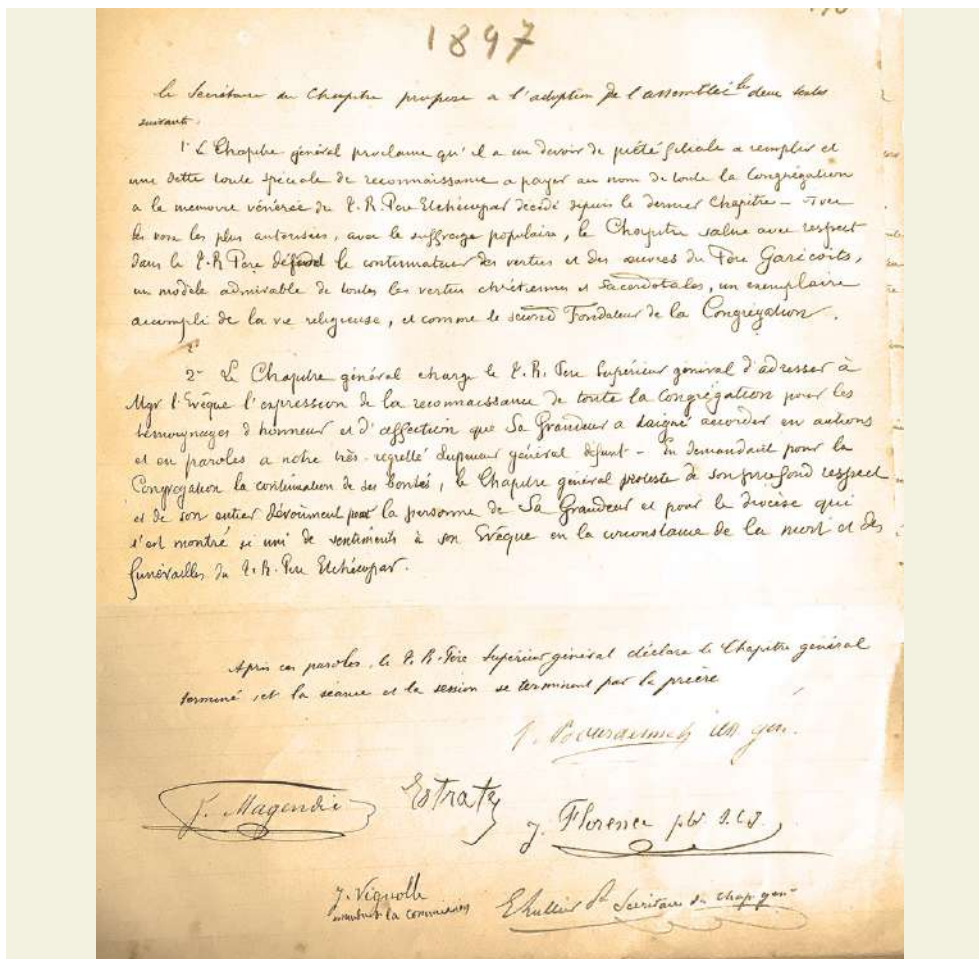 1897
Le Secrétaire du Chapitre propose a l'adoption de l'assemblée les deux textes
suivants.
1° Le Chapitre général proclame qu'il a un devoir de piété filiale a remplir et
une dette toute spéciale de reconnaissance a payer au nom de toute la Congrégation
a la memoire vénérée du T. R. Pere Etchécopar décédé depuis le dernier Chapitre – Avec
les voix les plus autorisées, avec le suffrage populaire, le Chapitre salue avec respect
dans le T. R. Pere défunt le continuateur des vertus et des œuvres du Père Garicoïts,
un modèle admirable de toutes les vertus chrétiennes et sacerdotales, un exemplaire
accompli de la vie religieuse, et comme le second Fondateur de la Congrégation.
2°
2° Le Chapitre général charge le T. R. Pere Supérieur général d'adresser à
Mgr l'Evêque l'expression de la reconnaissance de toute la Congrégation pour les
témoignages d'honneur et d'affection que Sa Grandeur a daigné accorder en actions
et en paroles a notre très-regretté Supérieur général défunt – En demandant pour la
Congrégation la continuation de ses bontés, le Chapitre général proteste de son profond respect
et de son entier dévoûment pour la personne de Sa Grandeur et pour le diocèse qui
s'est montré si uni de sentiments à son Evêque en la circonstance de la mort et des
funérailles du T. R. Pere Etchécopar.
Après ces paroles, le T. R. Père Supérieur général déclare le Chapitre général
terminé, et la séance et la session se terminent par la prière
gen.
J. Magendie
Estrate
J. Florence ptr. S.C.J.
J. Vignolle
membre de la commission
Secrétaire du chap. gen